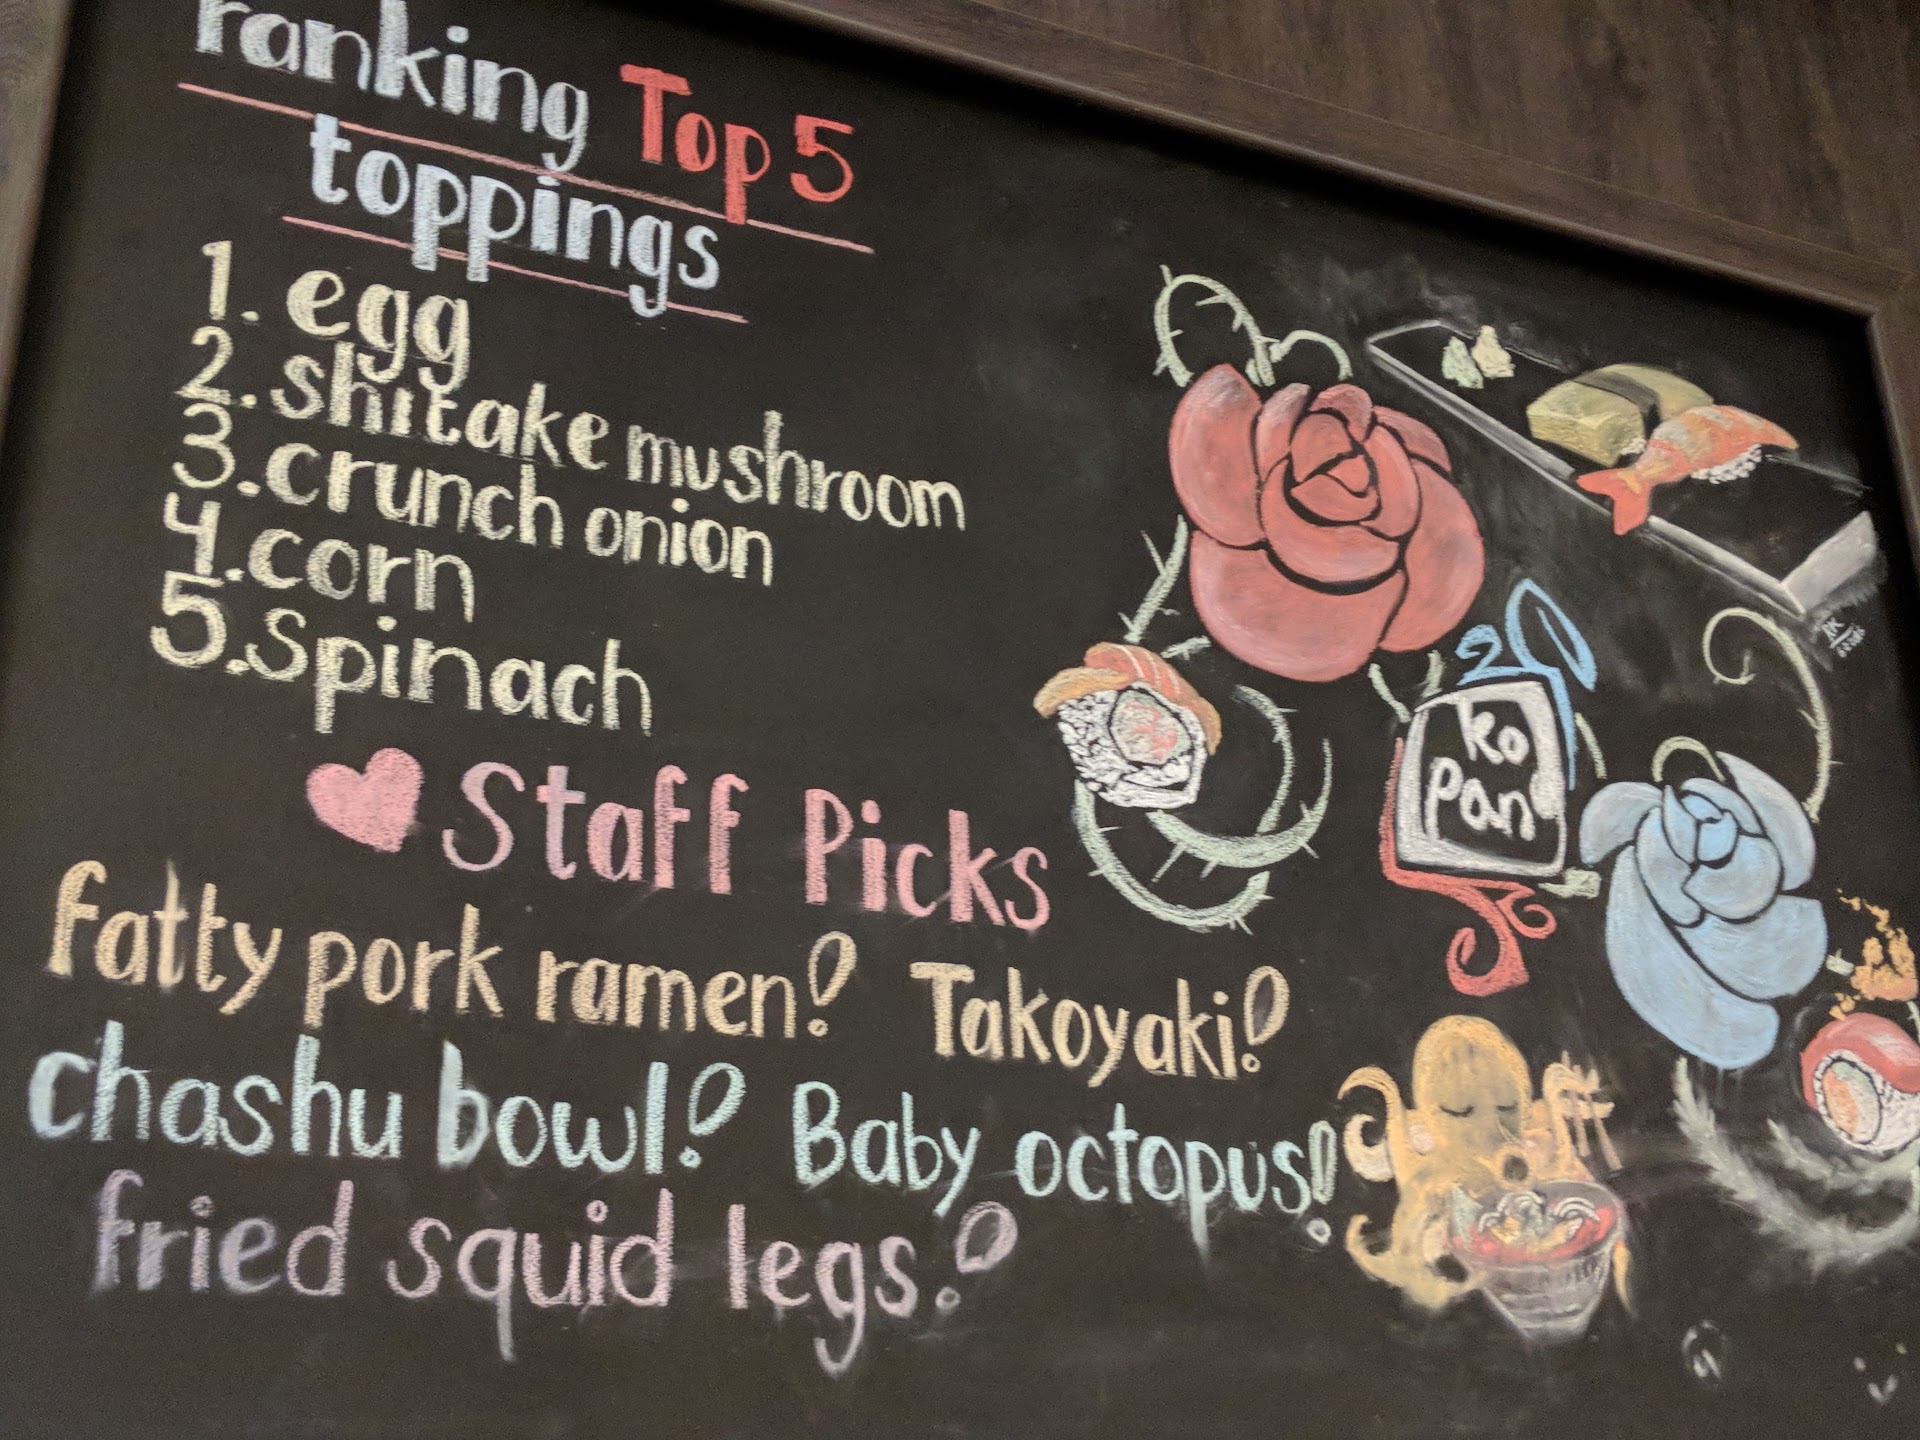 ranking Top 5
toppings
1. egg
2. shitake mushroom
3. crunch onion
4. corn
5. spinach
Staff Picks
fatty pork ramen! Takoyaki!
chashu bowl! Baby octopus!
fried squid legs!
ko
pan